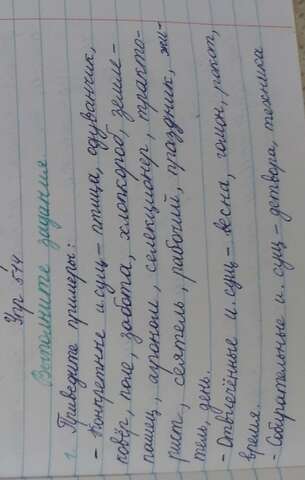 Упр 574
Выполните задания
1. Приведите примеры:
- Конкретные и сущ - птица, одуванчик,
ковёр, поле, забота, хлопкороб, земле-
пашец, агроном, селекционер, тракто-
рист, сеятель, рабочий, праздник, жи-
тель, день.
- Отвлечённые и. сущ - весна, гомон, рокот,
время.
- Собирательные и. сущ - детвора, техника